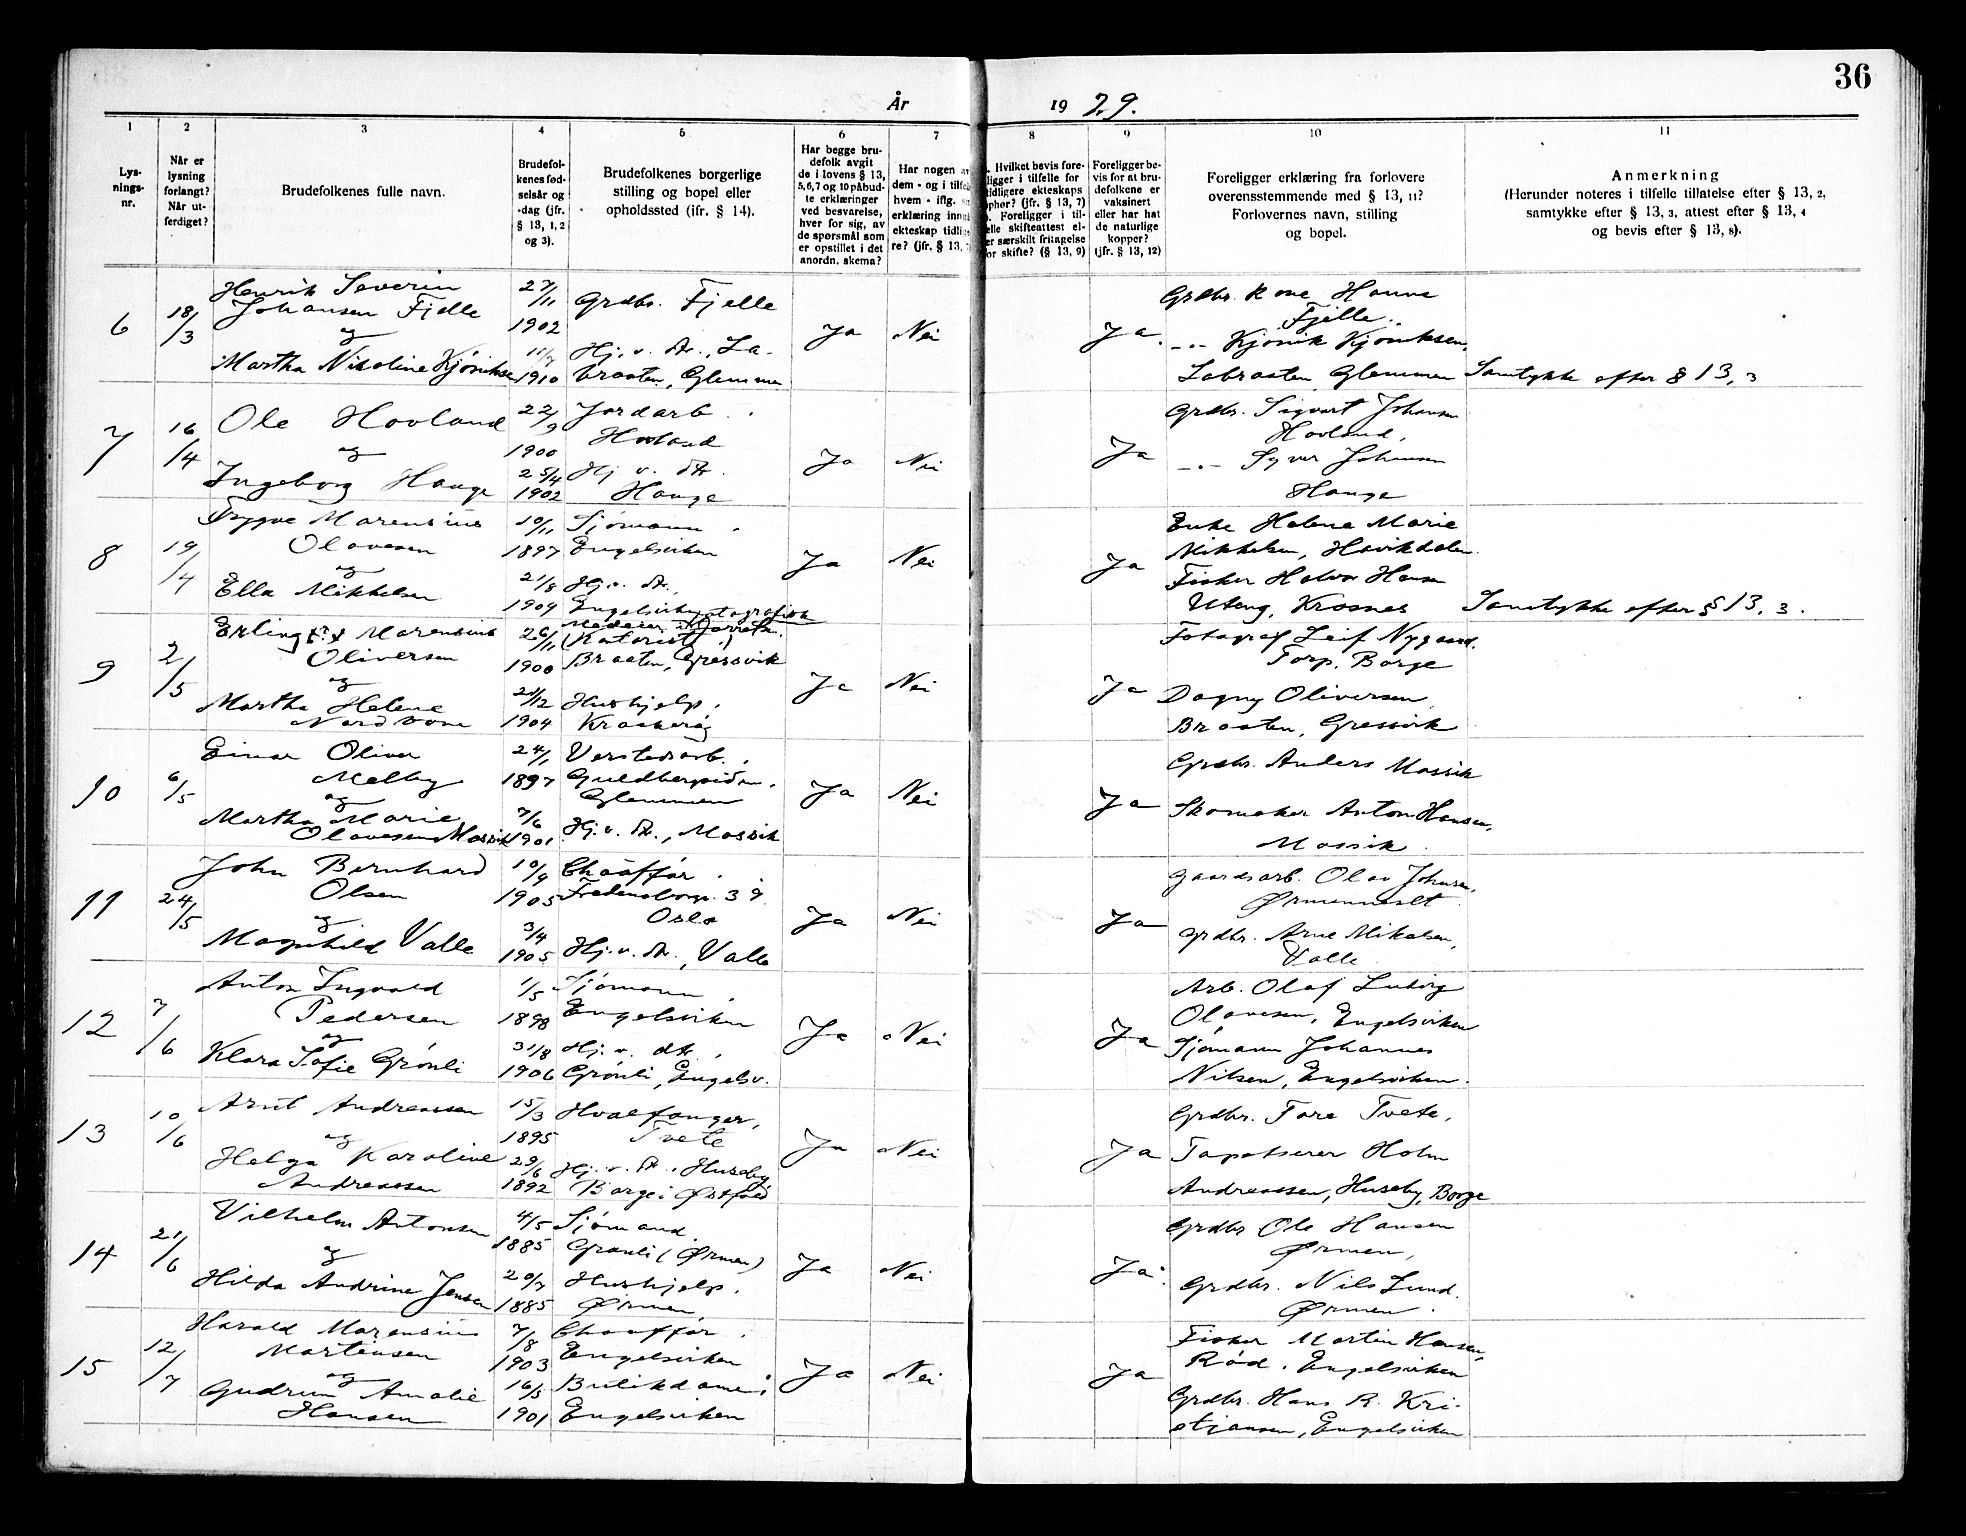 36
År 1929.
1 2 3 4 5 6 7 8 9 10 11
Lys-
nings-
nr.
Når er
lysning
forlangt?
Når ut-
ferdiget?
Brudefolkenes fulle navn.
Brudefol-
kenes fød-
selsår og
-dag (jfr.
§ 13, 1, 2
og 3).
Brudefolkenes borgerlige
stilling og bopel eller
opholdssted (ifr. § 14).
Har begge bru-
defolk avgit
de i lovens § 13,
5, 6, 7 og 10 påbud-
te erklæringer
ved besvarelse,
hver for sig, av
de spørsmål som
er opstillet i det
anordn. skema?
Har nogen av
dem - og i tilfel
hvem - iflg. s
erklæring inngå
ekteskap tidlig
re? (jfr. § 13,
Hvilket bevis fore-
ligger i tilfelle for
tidligere ekteskaps
ophør? (jfr. § 13, 7)
Foreligger i til-
elle skifteattest el-
er særskilt fritagelse
or skifte? (§ 13, 9)
Foreligger be-
vis for at bru-
defolkene er
vaksinert
eller har hat
de naturlige
kopper?
(jfr. § 13, 12)
Foreligger erklæring fra forlovere
overensstemmende med § 13, 11?
Forlovernes navn, stilling
og bopel.
Anmerkning
(Herunder noteres i tilfelle tillatelse efter § 13, 2,
samtykke efter § 13, 3, attest efter § 13, 4
og bevis efter § 13, 8).
6 18/3 Henrik Severin
Johansen Fjelle
og
Martha Nikoline Kjøniksen
27/11
1902
11/7
1910
Grdbr. Fjelle
Hj. v. dt., La-
braaten, Glemmen
Ja Nei Ja.
Grdbr. Hanne
Fjelle.
-"- Kjønik Kjøniksen,
Labraaten, Glemmen
Samtykke efter § 13, 3
7 16/4 Ole Hovland
og
Ingeborg Hauge
22/9
1900
25/4
1902
Jordarb.
Hovland
Hj. v. dt.
Hauge
Ja Nei Ja
Grdbr. Sigvart Johansen
Hovland,
-"- Syver Johansen
Hauge
8 19/4 Trygve Marensius
Olavesen
og
Ella Mikkelsen
10/11
1897
21/8
1909
Sjømann.
Engelsviken
Hj. v. dt.,
Engelsviken
Ja Nei Ja
Enke Helene Marie
Mikkelsen, Havikdalen
Fisker Halvor Hansen
Uteng, Krosnes
Samtykke efter § 13, 3.
9 2/5 Erling Marensius
Oliversen
og
Martha Helene
26/11
1900
21/12
1904
Braaten, Gressvik
Hushjelp,
Kraakerøy
Ja Nei Ja
Fotograf Leif Nygaard.
Torp. Borge
Dagny Oliversen,
Braaten, Gressvik
10 6/5 Einar Oliver
Melby
og
Martha Marie
Olavesen Mossik
24/1
1897
7/6
1901
Verstedsarb.,
Glemmen
Hj. v. dt., Mossik
Ja Nei Ja
Grdbr. Anders Mossik
Skomaker Anton Hansen,
Mossik.
11 24/5 John Bernhard
Olsen
og
Magnhild Valle
10/9
1905
3/4
1905
Chauffør.
Fredensborgv. 39.
Oslo
Hj. v. dt., Valle
Ja Nei Ja
gaardsarb. Olav Johnsen,
grdbr. Arne Mikalsen,
Valle.
12 7/6 Anton Ingvald
Pedersen
og
Klara Sofie Grønli
1/5
1898
31/8
1906
Sjømann,
Engelsviken
Hj. v. dt.,
Grønli, Engelsv.
Ja Nei Ja
Arb. Olaf Ludvig
Olavesen, Engelsviken
Sjømann Johannes
Nilsen, Engelsviken.
13 10/6 Arnt Andreassen
og
Helga Karoline
Andreassen
15/3
1895
29/6
1892
Hvalfanger,
Tvete
Hj. v. dt., Huseby
Borge i Østfold
Ja Nei Ja
Grdbr. Tore Tvete,
Tapetserer Holm
Andreassen, Huseby, Borge
14 21/6 Vilhelm Antonsen
og
Hilda Andrine Jensen
4/5
1885
20/7
1885
Sjømand.
Grønli (Ørmen)
Hushjelp.
Ørmen
Ja Nei Ja.
Grdbr Ole Hansen
Ørmen,
Grdbr. Nils Lund.
Ørmen.
15 12/7 Harald Marensius
Martinsen
og
Gudrun Amalie
Hansen
7/8
1903
16/5
1901
Chauffør.
Engelsviken
Butikdame,
Engelsviken
Ja Nei Ja
Fisker Martin Hansen,
Rød. Engelsviken
Grdbr. Hans R. Kri-
stiansen, Engelsviken